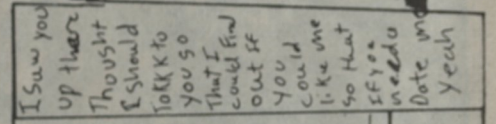 I saw you
up there
Thought
I should
TalKK to
you so
That I
could Find
out IF
you
could
like me
so that
IF you
needa
Date me
Yeah